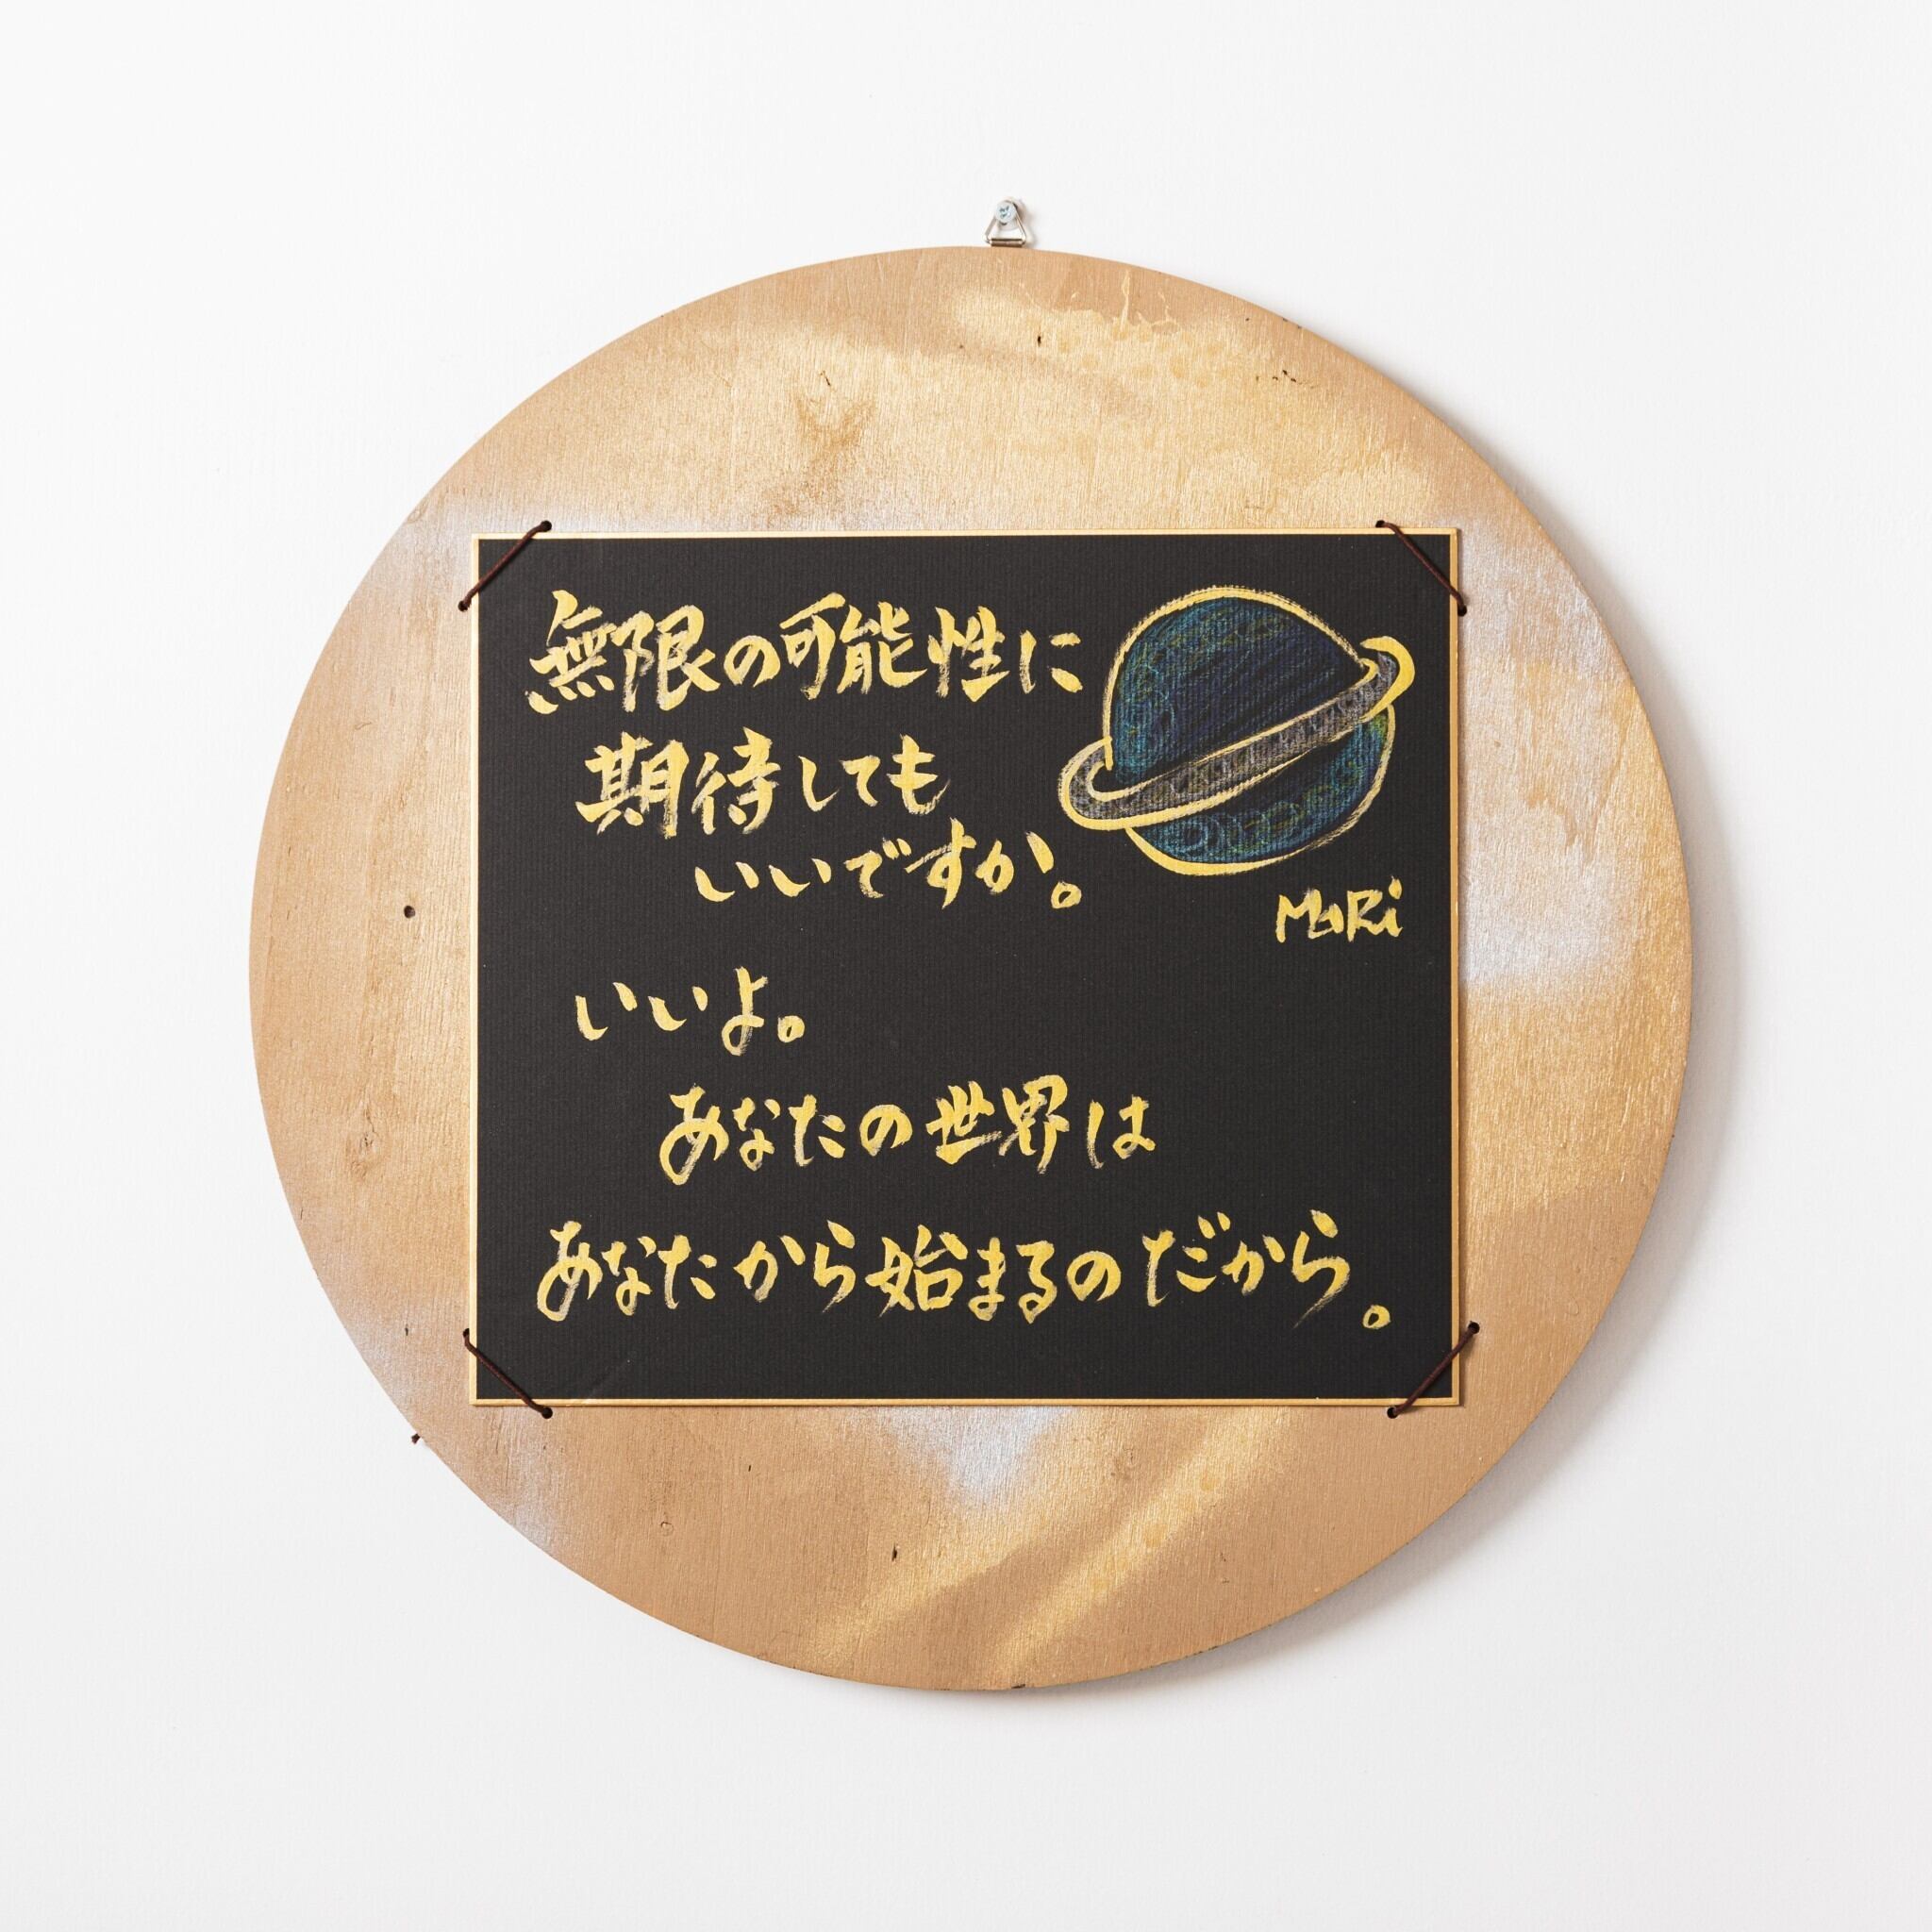 無限の可能性に
期待しても
いいですか。
MaRi
いいよ。
あなたの世界は
あなたから始まるのだから。